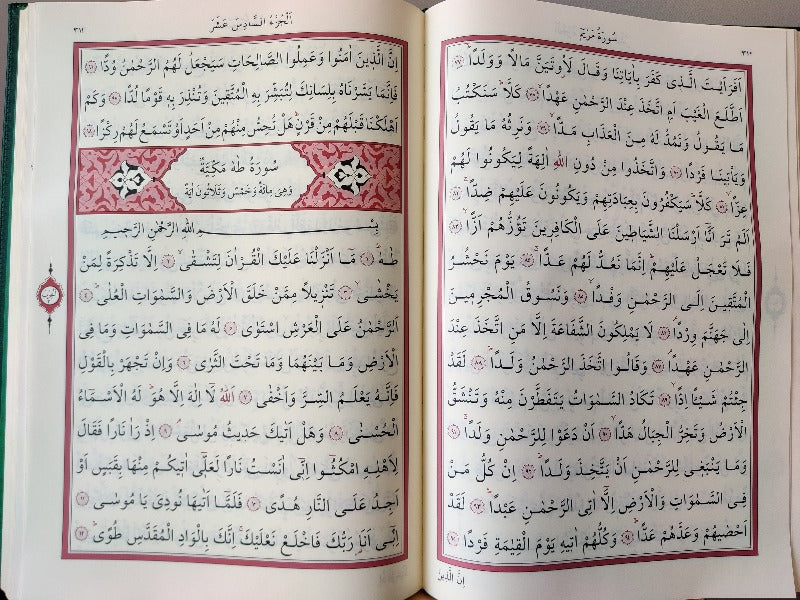 سُورَةُ مَرْيَمَ
٣١٠
اَفَرَاَيْتَ الَّذ۪ي كَفَرَ بِاٰيَاتِنَا وَقَالَ لَاُو۫تَيَنَّ مَالًا وَوَلَدًا ﴿٧٧﴾
اَطَّلَعَ الْغَيْبَ اَمِ اتَّخَذَ عِنْدَ الرَّحْمٰنِ عَهْدًا ﴿٧٨﴾ كَلَّا سَنَكْتُبُ
مَا يَقُولُ وَنَمُدُّ لَهُ مِنَ الْعَذَابِ مَدًّا ﴿٧٩﴾ وَنَرِثُهُ مَا يَقُولُ
وَيَأْت۪ينَا فَرْدًا ﴿٨٠﴾ وَاتَّخَذُوا مِنْ دُونِ اللّٰهِ اٰلِهَةً لِيَكُونُوا لَهُمْ
عِزًّا ﴿٨١﴾ كَلَّا سَيَكْفُرُونَ بِعِبَادَتِهِمْ وَيَكُونُونَ عَلَيْهِمْ ضِدًّا ﴿٨٢﴾
اَلَمْ تَرَ اَنَّا اَرْسَلْنَا الشَّيَاط۪ينَ عَلَى الْكَافِر۪ينَ تَؤُزُّهُمْ اَزًّا ﴿٨٣﴾
فَلَا تَعْجَلْ عَلَيْهِمْ اِنَّمَا نَعُدُّ لَهُمْ عَدًّا ﴿٨٤﴾ يَوْمَ نَحْشُرُ
الْمُتَّق۪ينَ اِلَى الرَّحْمٰنِ وَفْدًا ﴿٨٥﴾ وَنَسُوقُ الْمُجْرِم۪ينَ
اِلٰى جَهَنَّمَ وِرْدًا ﴿٨٦﴾ لَا يَمْلِكُونَ الشَّفَاعَةَ اِلَّا مَنِ اتَّخَذَ عِنْدَ
الرَّحْمٰنِ عَهْدًا ﴿٨٧﴾ وَقَالُوا اتَّخَذَ الرَّحْمٰنُ وَلَدًا ﴿٨٨﴾ لَقَدْ
جِئْتُمْ شَيْـًٔا اِدًّا ﴿٨٩﴾ تَكَادُ السَّمٰوَاتُ يَتَفَطَّرْنَ مِنْهُ وَتَنْشَقُّ
الْاَرْضُ وَتَخِرُّ الْجِبَالُ هَدًّا ﴿٩٠﴾ اَنْ دَعَوْا لِلرَّحْمٰنِ وَلَدًا ﴿٩١﴾
وَمَا يَنْبَغ۪ي لِلرَّحْمٰنِ اَنْ يَتَّخِذَ وَلَدًا ﴿٩٢﴾ اِنْ كُلُّ مَنْ
فِي السَّمٰوَاتِ وَالْاَرْضِ اِلَّا اٰتِي الرَّحْمٰنِ عَبْدًا ﴿٩٣﴾ لَقَدْ
اَحْصٰيهُمْ وَعَدَّهُمْ عَدًّا ﴿٩٤﴾ وَكُلُّهُمْ اٰت۪يهِ يَوْمَ الْقِيٰمَةِ فَرْدًا ﴿٩٥﴾
اِنَّ الَّذ۪ينَ
اَلْجُزْءُ السَّادِسَ عَشَرَ
٣١١
اِنَّ الَّذ۪ينَ اٰمَنُوا وَعَمِلُوا الصَّالِحَاتِ سَيَجْعَلُ لَهُمُ الرَّحْمٰنُ وُدًّا ﴿٩٦﴾
فَاِنَّمَا يَسَّرْنَاهُ بِلِسَانِكَ لِتُبَشِّرَ بِهِ الْمُتَّق۪ينَ وَتُنْذِرَ بِه۪ قَوْمًا لُدًّا ﴿٩٧﴾ وَكَمْ
اَهْلَكْنَا قَبْلَهُمْ مِنْ قَرْنٍ هَلْ تُحِسُّ مِنْهُمْ مِنْ اَحَدٍ اَوْ تَسْمَعُ لَهُمْ رِكْزًا ﴿٩٨﴾
سُورَةُ طٰهٰ مَكِّيَّةٌ
وَهِيَ مِائَةٌ وَخَمْسٌ وَثَلَاثُونَ اٰيَةً
بِسْمِ اللّٰهِ الرَّحْمٰنِ الرَّح۪يمِ
طٰهٰ ﴿١﴾ مَا اَنْزَلْنَا عَلَيْكَ الْقُرْاٰنَ لِتَشْقٰى ﴿٢﴾ اِلَّا تَذْكِرَةً لِمَنْ
يَخْشٰى ﴿٣﴾ تَنْز۪يلًا مِمَّنْ خَلَقَ الْاَرْضَ وَالسَّمٰوَاتِ الْعُلٰى ﴿٤﴾
اَلرَّحْمٰنُ عَلَى الْعَرْشِ اسْتَوٰى ﴿٥﴾ لَهُ مَا فِي السَّمٰوَاتِ وَمَا فِي
الْاَرْضِ وَمَا بَيْنَهُمَا وَمَا تَحْتَ الثَّرٰى ﴿٦﴾ وَاِنْ تَجْهَرْ بِالْقَوْلِ
فَاِنَّهُ يَعْلَمُ السِّرَّ وَاَخْفٰى ﴿٧﴾ اَللّٰهُ لَا اِلٰهَ اِلَّا هُوَ لَهُ الْاَسْمَاءُ
الْحُسْنٰى ﴿٨﴾ وَهَلْ اَتٰيكَ حَد۪يثُ مُوسٰى ﴿٩﴾ اِذْ رَاٰ نَارًا فَقَالَ
لِاَهْلِهِ امْكُثُوا اِنّ۪ي اٰنَسْتُ نَارًا لَعَلّ۪ي اٰت۪يكُمْ مِنْهَا بِقَبَسٍ اَوْ
اَجِدُ عَلَى النَّارِ هُدًى ﴿١٠﴾ فَلَمَّا اَتٰيهَا نُودِيَ يَا مُوسٰى ﴿١١﴾
اِنّ۪ي اَنَا رَبُّكَ فَاخْلَعْ نَعْلَيْكَ اِنَّكَ بِالْوَادِ الْمُقَدَّسِ طُوًى ﴿١٢﴾